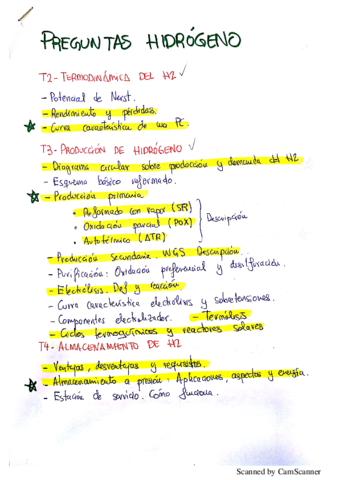 PREGUNTAS HIDRÓGENO
T2- TERMODINÁMICA DEL H2 ✓
- Potencial de Nerst.
- Rendimiento y pérdidas.
- Curva característica de una PC.
T3- PRODUCCIÓN DE HIDRÓGENO ✓
- Diagrama circular sobre producción y demanda del H2
- Esquema básico reformado.
- Producción primaria
• Reformado con vapor (SR)
• Oxidación parcial (POX)
• Autotérmico (ATR)
Descripción
- Producción secundaria. WGS Descripción.
- Purificación: Oxidación preferencial y desulfuración.
- Electrólisis. Def y reacción
- Curva característica electrolisis y sobretensiones.
- Componentes electrolizador. - Termólisis
- Ciclos termoquímicos y reactores solares
T4- ALMACENAMIENTO DE H2
- Ventajas, desventajas y requisitos.
- Almacenamiento a presión: Aplicaciones, aspectos y energía.
- Estación de servicio. Cómo funciona.
Scanned by CamScanner